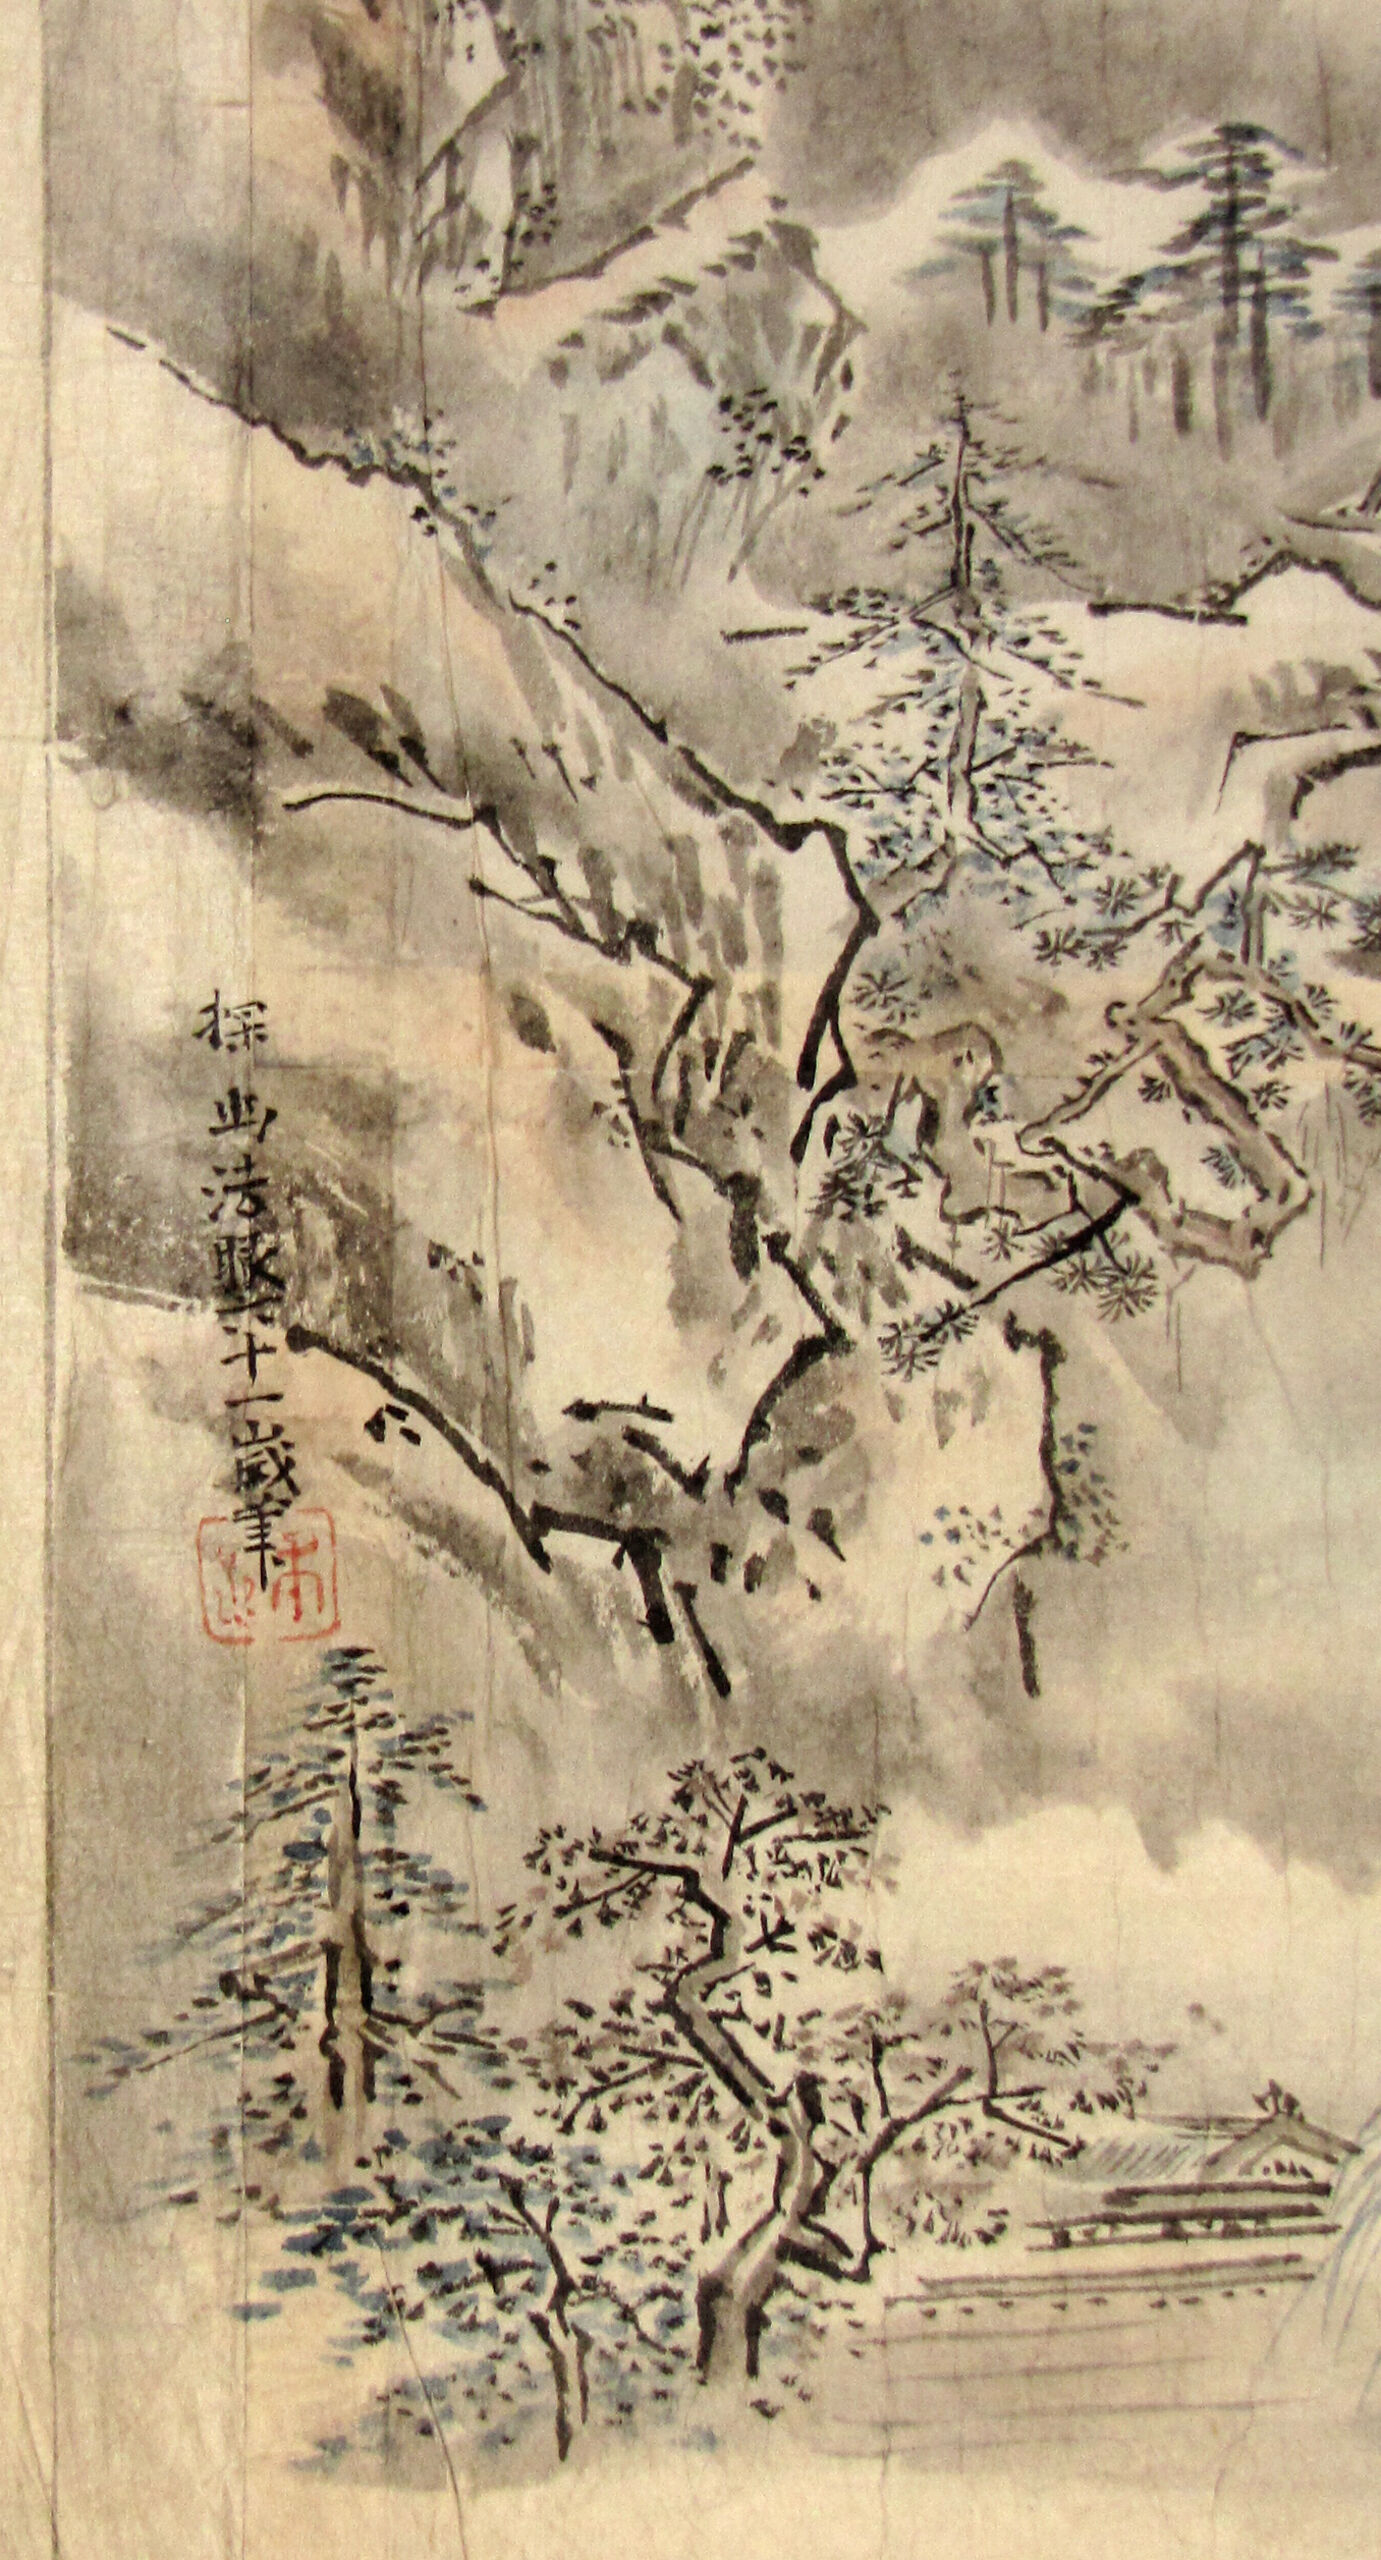 探幽法眼六十一歳筆